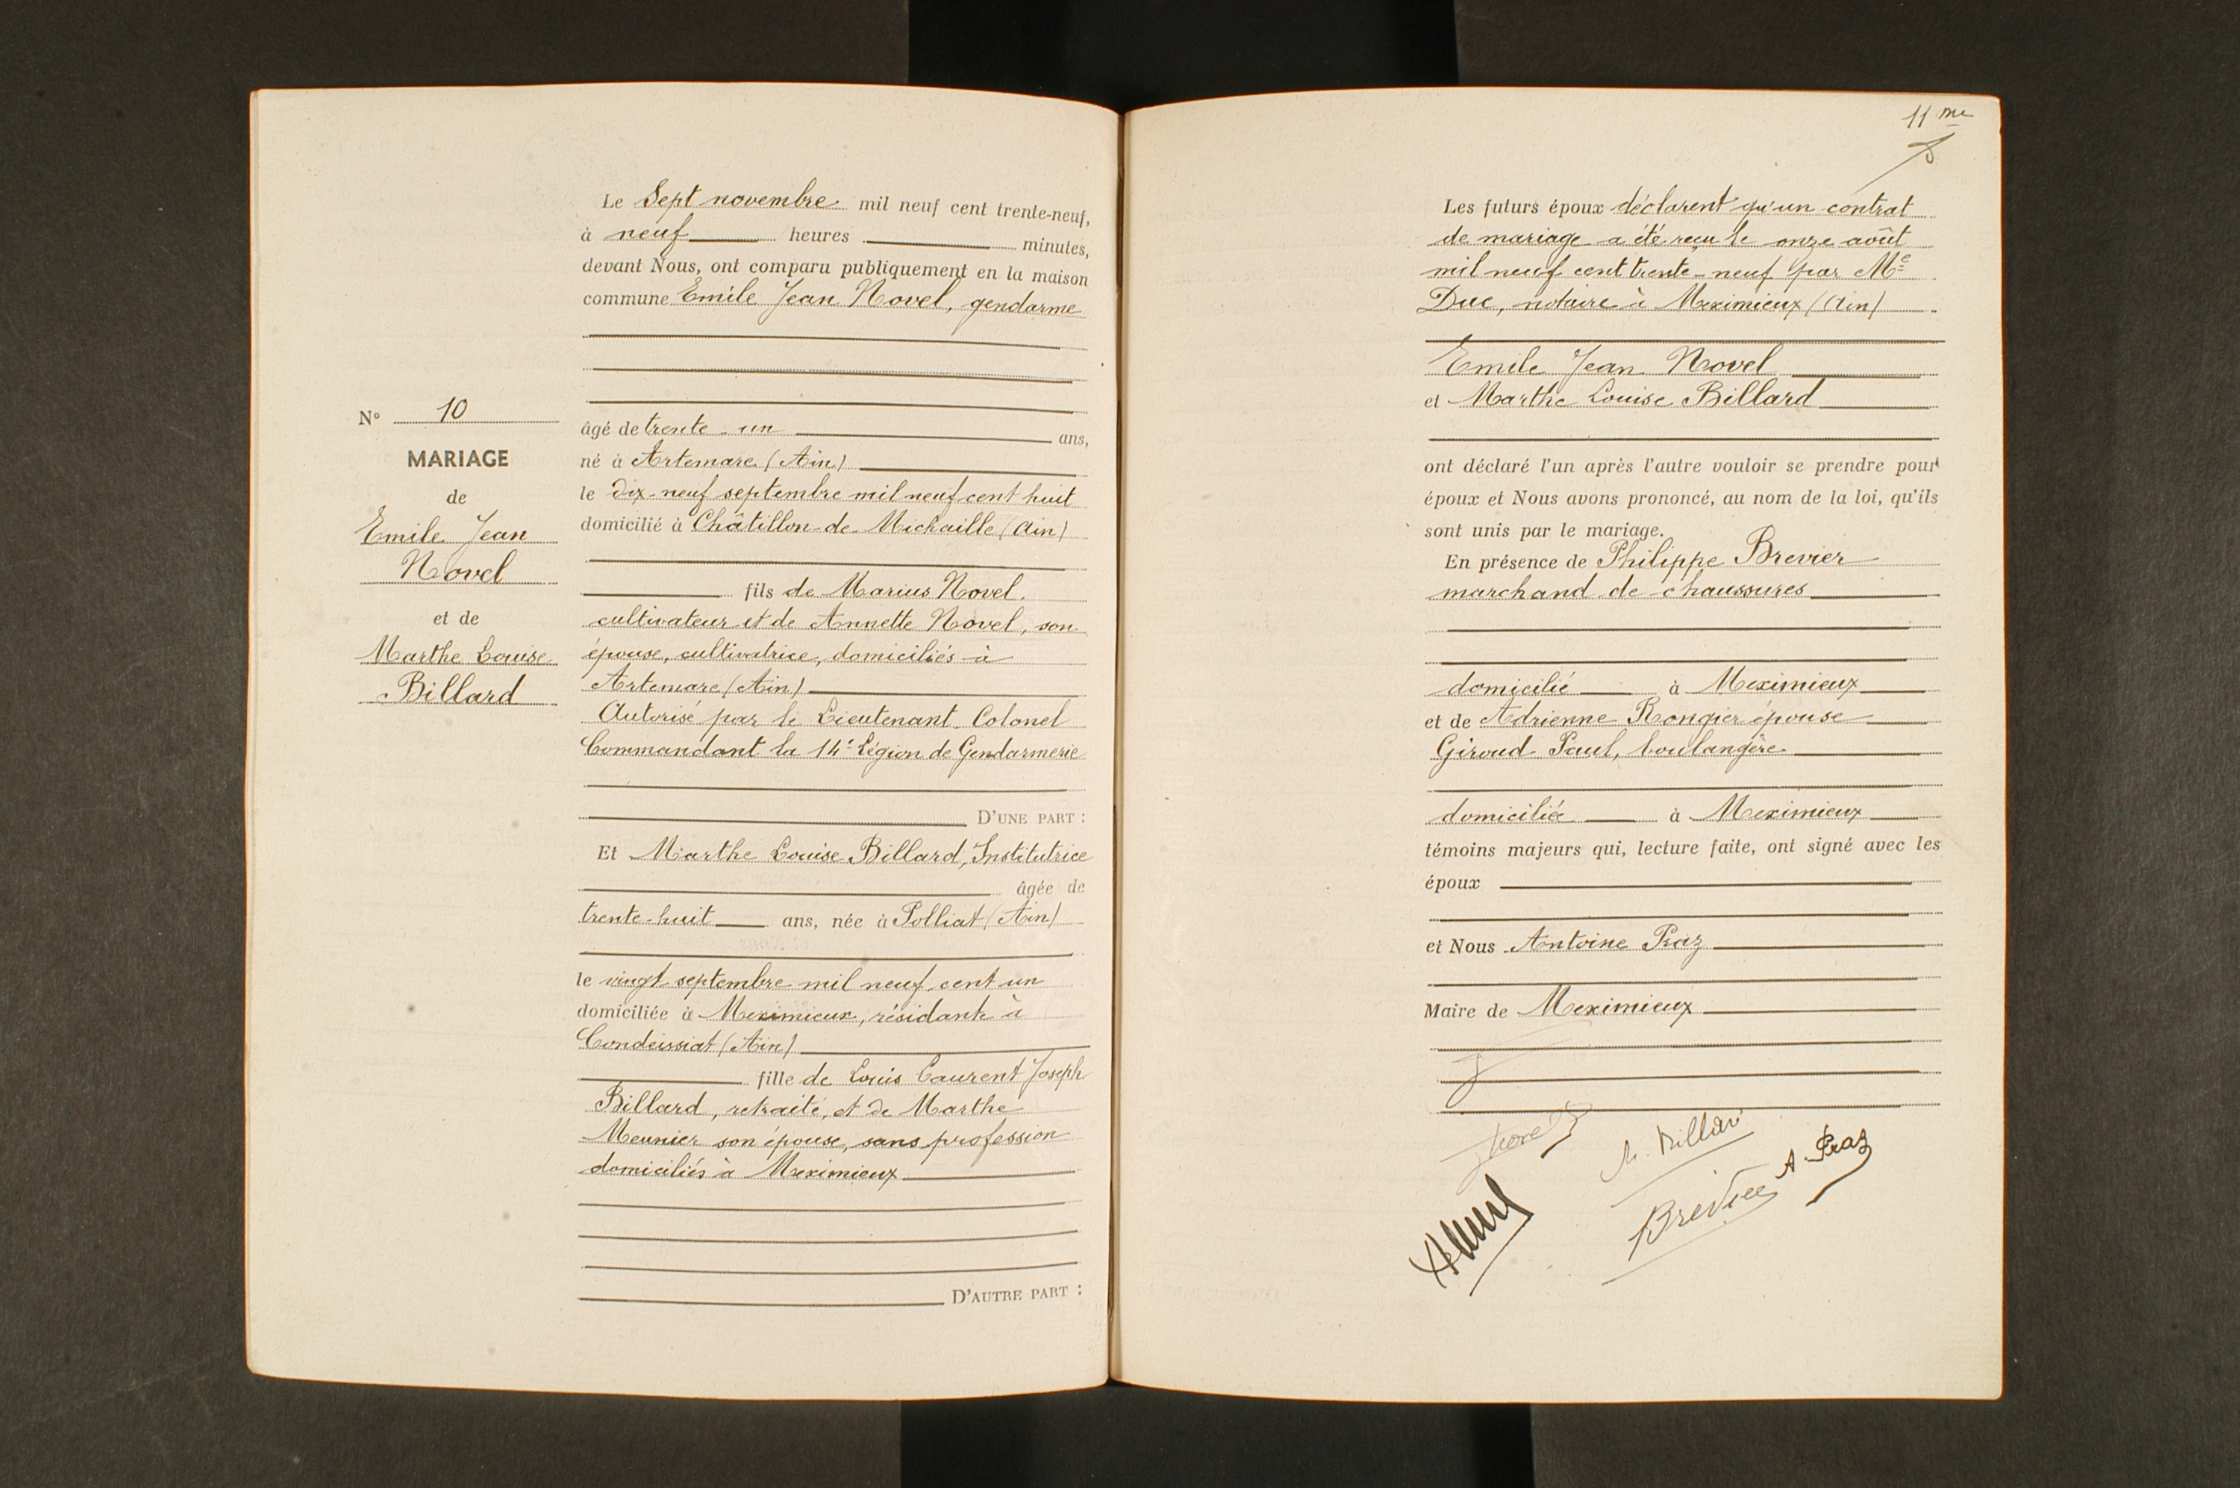 Le Sept novembre mil neuf cent trente-neuf,
à neuf heures minutes,
devant Nous, ont comparu publiquement en la maison
commune Emile Jean Novel, gendarme
âgé de trente-un ans,
né à Artemare (Ain)
le dix-neuf septembre mil neuf cent huit
domicilié à Châtillon-de-Michaille (Ain)
fils de Marius Novel.
cultivateur et de Annette Novel, son
épouse, cultivatrice, domiciliés à
Artemare (Ain)
Autorisé par le Lieutenant-Colonel
Commandant la 14e Légion de Gendarmerie
D'UNE PART :
Nº 10
MARIAGE
de
Emile Jean
Novel
et de
Marthe Louise
Billard
Et Marthe Louise Billard, Institutrice
âgée de
trente-huit ans, née à Polliat (Ain)
le vingt septembre mil neuf cent un
domiciliée à Meximieux, résidante à
Condeissiat (Ain)
fille de Louis Laurent Joseph
Billard, retraité, et de Marthe
Meunier son épouse, sans profession
domiciliés à Meximieux
D'AUTRE PART :
11 me
Les futurs époux déclarent qu'un contrat
de mariage a été reçu le onze août
mil neuf cent trente-neuf par Me
Duc, notaire à Meximieux (Ain)
Emile Jean Novel
et Marthe Louise Billard
ont déclaré l'un après l'autre vouloir se prendre pour
époux et Nous avons prononcé, au nom de la loi, qu'ils
sont unis par le mariage.
En présence de Philippe Brevier
marchand de chaussures
domicilié à Meximieux
et de Adrienne Rongier épouse
Giroud Paul, boulangère
domiciliée à Meximieux
témoins majeurs qui, lecture faite, ont signé avec les
époux
et Nous Antoine Praz
Maire de Meximieux
Novel
M. Billard
A. Praz
Brevier